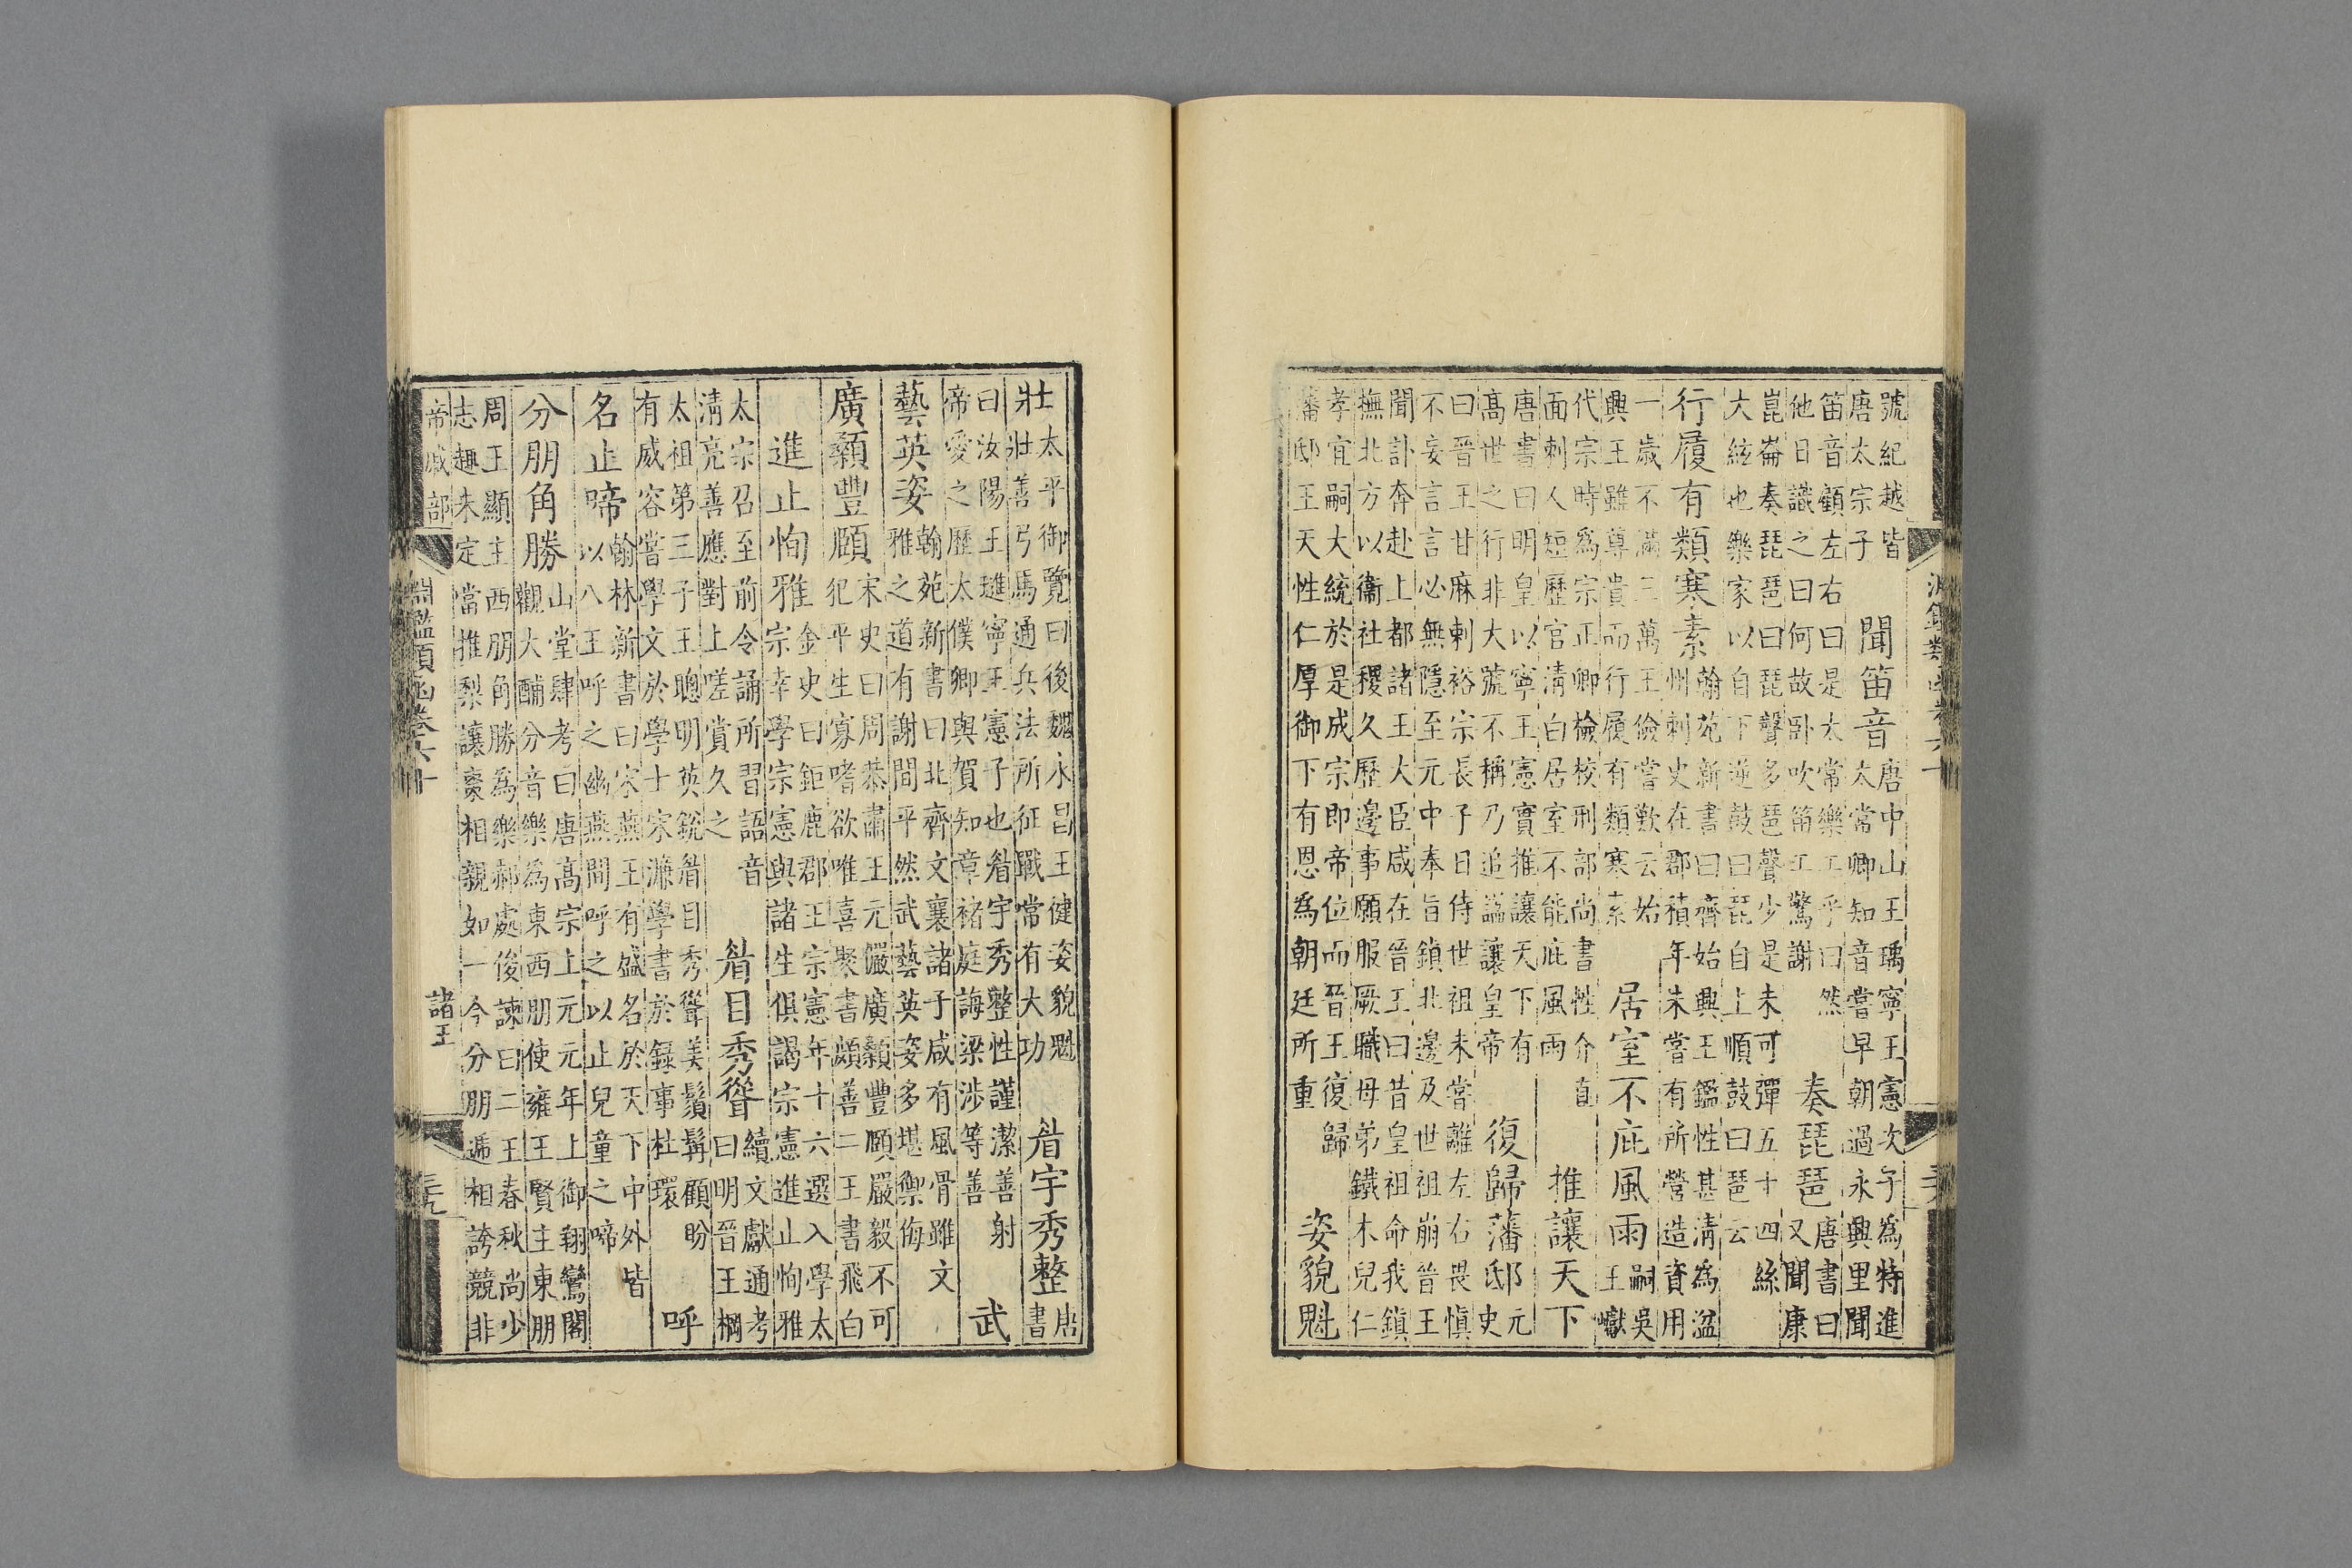 號紀越皆
唐太宗子
聞笛音
唐中山王瑀寧王憲次子為特進
太常卿知音嘗早朝過永興里聞
笛音顧左右曰是太常樂工乎曰然
他日識之曰何故卧吹笛工驚謝
奏琵琶
唐書曰
又聞康
崑崙奏琵琶曰琵聲多琶聲少是未可彈五十四絲
大絃也樂家以自下逆鼓曰琵自上順鼓曰琶云
行履有類寒素
翰苑新書曰齊始興王鑑性甚清為溢
州刺史在郡積年未嘗有所營造資用
一歲不滿三萬王儉嘗歎云始
興王雖尊貴而行履有類寒素
居室不庇風雨
嗣吳
王巘
代宗時為宗正卿檢校刑部尚書性介直
面刺人短歷官清白居室不能庇風雨
推讓天下
唐書曰明皇以寧王憲實推讓天下有
高世之行非大號不稱乃追諡讓皇帝
復歸藩邸
元
史
曰晉王甘麻剌裕宗長子日侍世祖未嘗離左右畏慎
不妄言言必無隱至元中奉旨鎮北邊及世祖崩晉王
聞訃奔赴上都諸王大臣咸在晉王曰昔皇祖命我鎮
撫北方以衞社稷久歷邊事願服厥職母弟鐵木兒仁
孝宜嗣大統於是成宗即帝位而晉王復歸
藩邸王天性仁厚御下有恩為朝廷所重
姿貌魁
淵鑑類函卷六十
壯
太平御覽曰後魏永昌王健姿貌魁
壯善弓馬通兵法所征戰常有大功
眉宇秀整
唐
書
曰汝陽王璡寧王憲子也眉宇秀整性謹潔善射
帝愛之歷太僕卿與賀知章褚庭誨梁涉等善
武
藝英姿
翰苑新書曰北齊文襄諸子咸有風骨雖文
雅之道有謝間平然武藝英姿多堪禦侮
廣顙豐頤
宋史曰周恭肅王元儼廣顙豐頤嚴毅不可
犯平生寡嗜欲唯喜聚書頗善二王書飛白
進止恂雅
金史曰鉅鹿郡王宗憲年十六選入學太
宗幸學宗憲與諸生俱謁宗憲進止恂雅
太宗召至前令誦所習語音
清亮善應對上嗟賞久之
眉目秀聳
續文獻通考
曰明晉王棡
太祖第三子王聰明英銳眉目秀聳美鬚髯顧盼
有威容嘗學文於學士宋濂學書於錄事杜環
呼
名止啼
翰林新書曰宋燕王有盛名於天下中外皆
以八王呼之幽燕間呼之以止兒童之啼
分朋角勝
山堂肆考曰唐高宗上元元年上御翔鸞閣
觀大酺分音樂為東西朋使雍王賢主東朋
周王顯主西朋角勝為樂郝處俊諫曰二王春秋尚少
志趣未定當推梨讓棗相親如一今分朋遞相誇競非
帝戚部
淵鑑類函卷六十
諸王